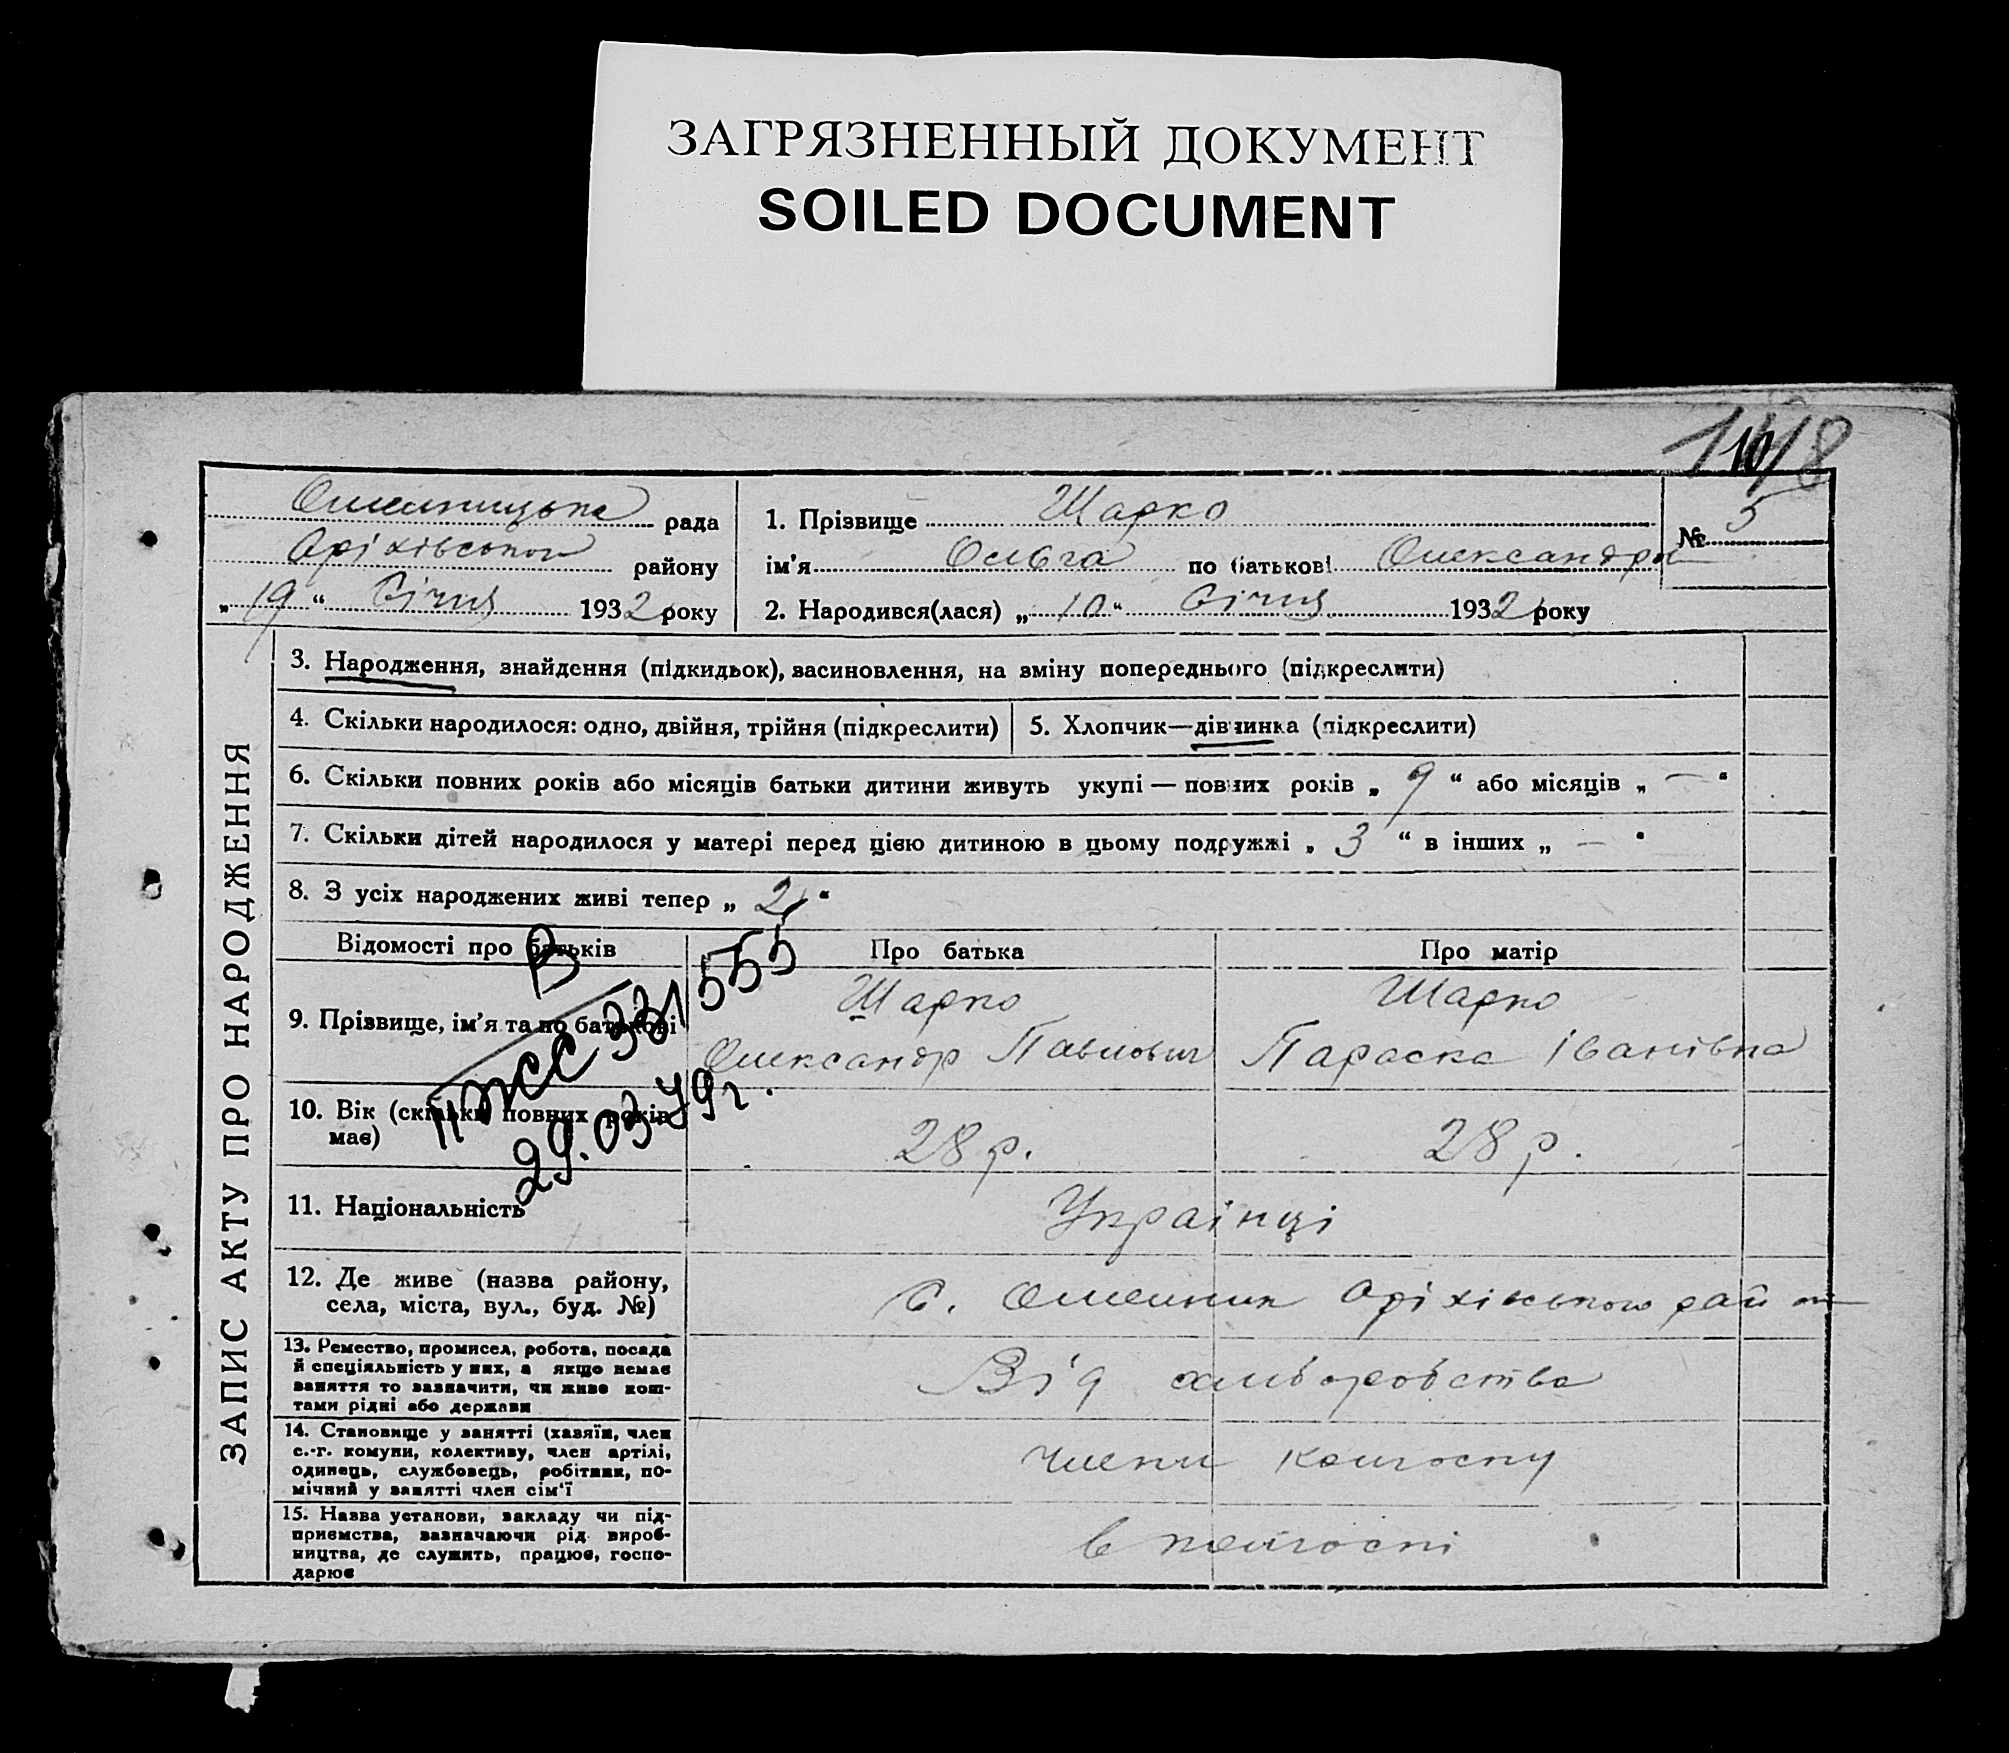 ЗАГРЯЗНЕННЫЙ ДОКУМЕНТ
SOILED DOCUMENT
Омельницька рада
Оріхівського району
„ 19 “ Січня 1932 року
1. Прізвище Шарко
ім'я Ольга по батькові Олександров
2. Народився(лася) „ 10 “ Січня 1932 року
№ 5
ЗАПИС АКТУ ПРО НАРОДЖЕННЯ
3. Народження, знайдення (підкидьок), засиновлення, на зміну попереднього (підкреслити)
4. Скільки народилося: одно, двійня, трійня (підкреслити)
5. Хлопчик—дівчинка (підкреслити)
6. Скільки повних років або місяців батьки дитини живуть укупі — повних років „ 9 “ або місяців „ — “
7. Скільки дітей народилося у матері перед цією дитиною в цьому подружжі „ 3 “ в інших „ — “
8. З усіх народжених живі тепер „ 2 “
Відомості про батьків
Про батька
Про матір
9. Прізвище, ім'я та по батькові
Шарко
Олександр Павлович
Шарко
Параска Іванівна
10. Вік (скільки повних років
має)
28 р.
28 р.
11. Національність
Українці
12. Де живе (назва району,
села, міста, вул., буд. №)
С. Омельник Оріхівського рай
13. Ремество, промисел, робота, посада
й спеціяльність у них, а якщо немає
заняття то зазначити, чи живе кош-
тами рідні або держави
Від хліборобства
14. Становище у занятті (хазяїн, член
с.-г. комуни, колективу, член артілі,
одинець, службовець, робітник, по-
мічний у занятті член сім'ї
члени колгоспу
15. Назва установи, закладу чи під-
приємства, зазначаючи рід вироб-
ництва, де служить, працює, госпо-
дарює
в колгоспі
29.03.79г.